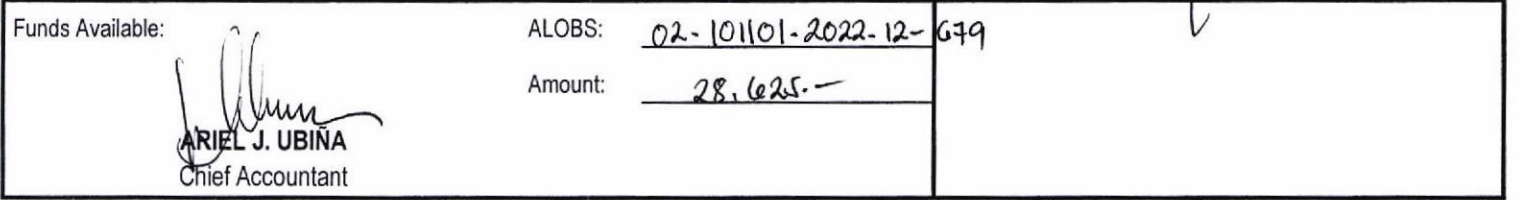 Funds Available:
ALOBS: 02-101101-2022-12-679
Amount: 28,625.-
ARIEL J. UBIÑA
Chief Accountant